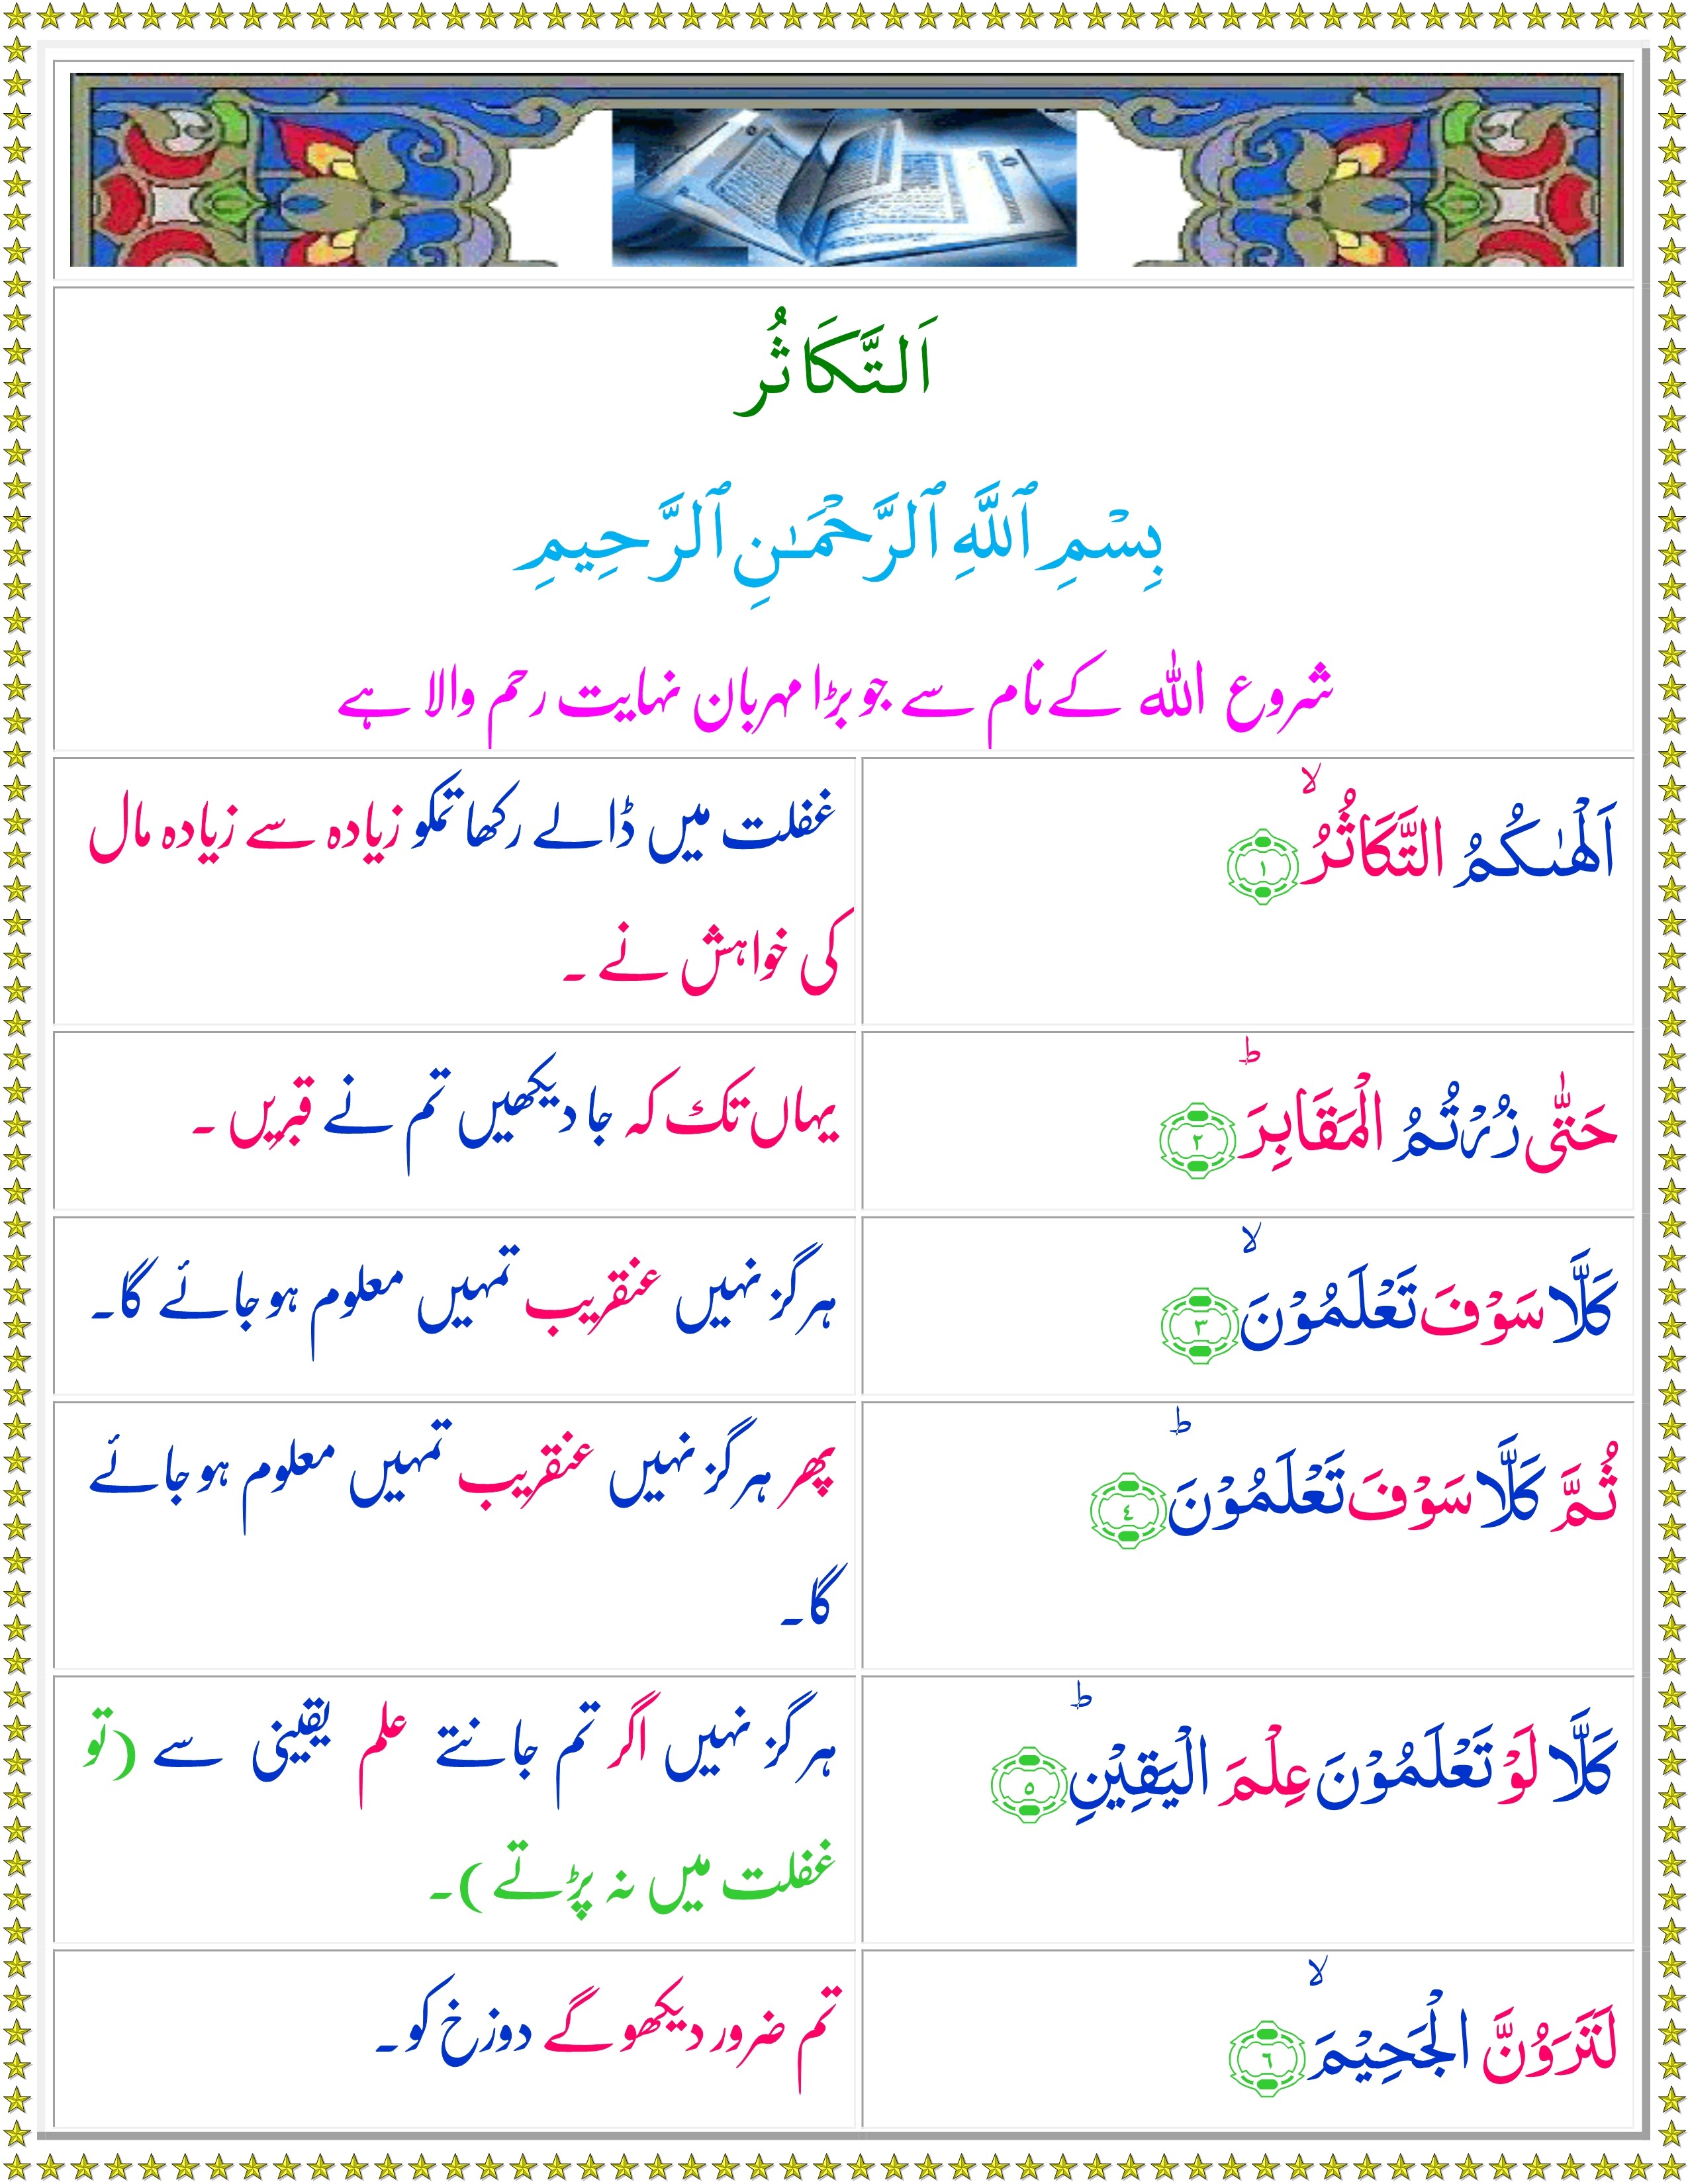 اَلتَّكَاثُر
بِسْمِ ٱللَّهِ ٱلرَّحْمَـٰنِ ٱلرَّحِيمِ
شروع اللہ کے نام سے جو بڑا مہربان نہایت رحم والا ہے
اَلْهٰٮكُمُ التَّكَاثُرُ ۙ‏ ﴿۱﴾
غفلت میں ڈالے رکھا تمکو زیادہ سے زیادہ مال
کی خواہش نے ۔
حَتّٰى زُرْتُمُ الْمَقَابِرَ ؕ‏ ﴿۲﴾
یہاں تک کہ جا دیکھیں تم نے قبریں ۔
كَلَّا سَوْفَ تَعْلَمُوْنَ ۙ‏ ﴿۳﴾
ہرگز نہیں عنقریب تمہیں معلوم ہوجائے گا۔
ثُمَّ كَلَّا سَوْفَ تَعْلَمُوْنَ ؕ‏ ﴿٤﴾
پھر ہرگز نہیں عنقریب تمہیں معلوم ہوجائے
گا۔
كَلَّا لَوْ تَعْلَمُوْنَ عِلْمَ الْيَقِيْنِ ؕ‏ ﴿۵﴾
ہرگز نہیں اگر تم جانتے علم یقینی سے (تو
غفلت میں نہ پڑتے)۔
لَتَرَوُنَّ الْجَحِيْمَ ۙ‏ ﴿٦﴾
تم ضرور دیکھو گے دوزخ کو۔